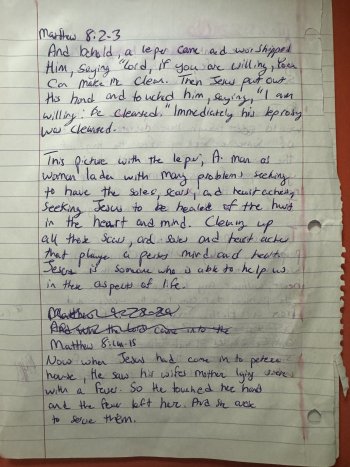 Matthew 8:2-3
And behold, a leper came and worshipped
Him, saying "Lord, if you are willing, You
Can make me clean. Then Jesus put out
His hand and touched him, saying, "I am
willing. Be cleansed." Immediately his leprosy
was cleansed.
This picture with the leper, A man or
woman laden with many problems seeking
to have the sores, scars, and heart aches
seeking Jesus to be healed of the hurt
in the heart and mind. Clearing up
all these scars, and sores and heart aches
that plague a person mind and heart.
Jesus is someone who is able to help us
in these aspects of life.
Matthew
And when the Lord came into the
Matthew 8:14-15
Now when Jesus had come in to peters
house, He saw his wifes mother lying sick
with a fever. So He touched her hand
and the fever left her. And she arose
to serve them.